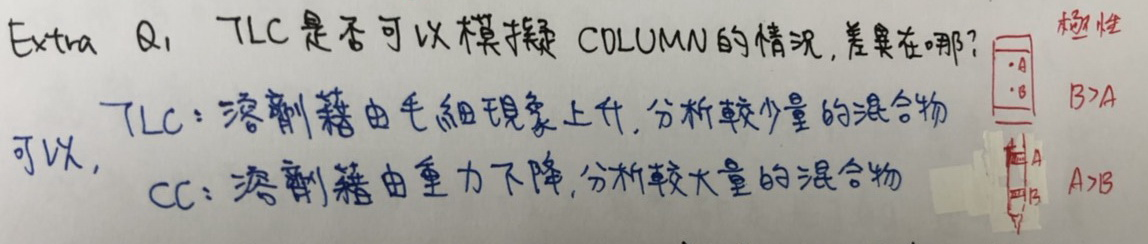 Extra Q1 TLC是否可以模擬 COLUMN的情況,差異在哪?
極性
·A
·B
B>A
TLC:溶劑藉由毛細現象上升,分析較少量的混合物
可以,
CC:溶劑藉由重力下降,分析較大量的混合物
A
B
A>B